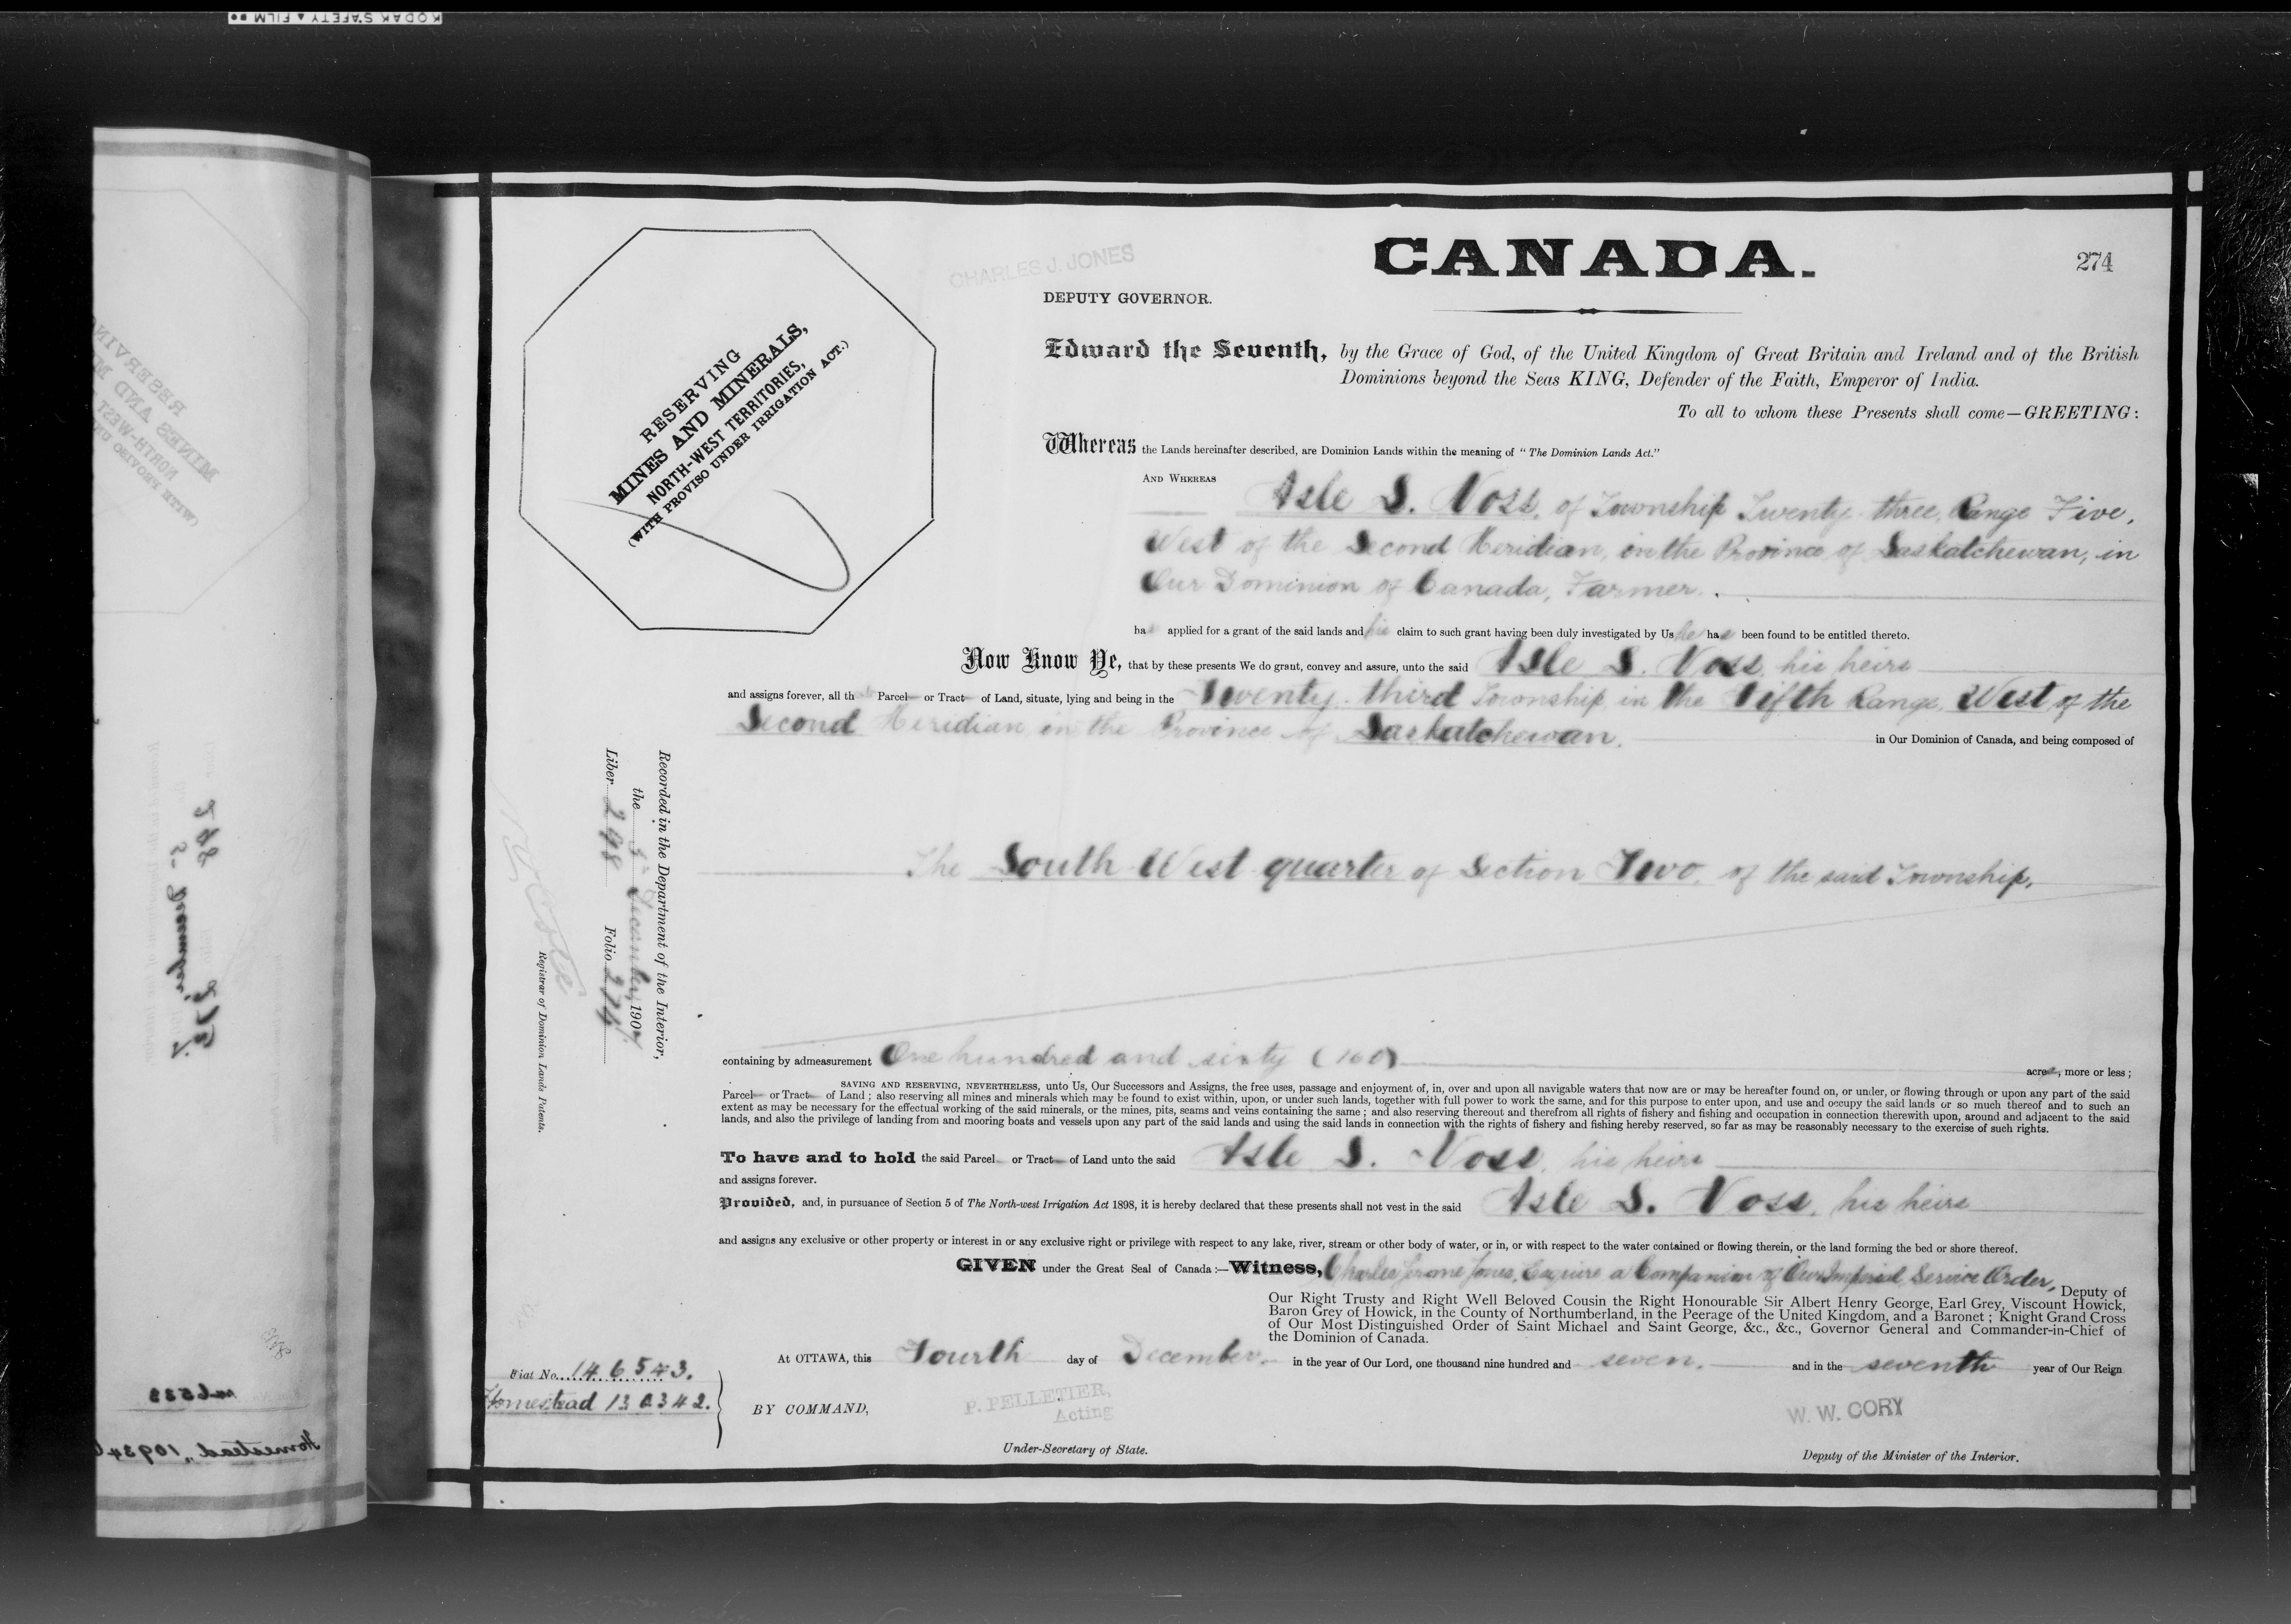 KODAK SAFETY ▲ FILM
CANADA.
274
CHARLES J. JONES
DEPUTY GOVERNOR.
RESERVING
MINES AND MINERALS,
NORTH-WEST TERRITORIES,
(WITH PROVISO UNDER IRRIGATION ACT.)
Edward the Seventh, by the Grace of God, of the United Kingdom of Great Britain and Ireland and of the British
Dominions beyond the Seas KING, Defender of the Faith, Emperor of India.
To all to whom these Presents shall come—GREETING:
Whereas the Lands hereinafter described, are Dominion Lands within the meaning of "The Dominion Lands Act."
AND WHEREAS
Asle S. Voss, of Township Twenty-three, Range Five,
West of the Second Meridian, in the Province of Saskatchewan, in
Our Dominion of Canada, Farmer.
has applied for a grant of the said lands and his claim to such grant having been duly investigated by Us he has been found to be entitled thereto.
Now Know Ye, that by these presents We do grant, convey and assure, unto the said Asle S. Voss, his heirs
and assigns forever, all th Parcel or Tract of Land, situate, lying and being in the Twenty-third Township, in the Fifth Range, West of the
Second Meridian, in the Province of Saskatchewan.
in Our Dominion of Canada, and being composed of
The South West quarter of Section Two, of the said Township.
containing by admeasurement One hundred and sixty (160)
acres, more or less;
SAVING AND RESERVING, NEVERTHELESS, unto Us, Our Successors and Assigns, the free uses, passage and enjoyment of, in, over and upon all navigable waters that now are or may be hereafter found on, or under, or flowing through or upon any part of the said
Parcel or Tract of Land; also reserving all mines and minerals which may be found to exist within, upon, or under such lands, together with full power to work the same, and for this purpose to enter upon, and use and occupy the said lands or so much thereof and to such an
extent as may be necessary for the effectual working of the said minerals, or the mines, pits, seams and veins containing the same; and also reserving thereout and therefrom all rights of fishery and fishing and occupation in connection therewith upon, around and adjacent to the said
lands, and also the privilege of landing from and mooring boats and vessels upon any part of the said lands and using the said lands in connection with the rights of fishery and fishing hereby reserved, so far as may be reasonably necessary to the exercise of such rights.
To have and to hold the said Parcel or Tract of Land unto the said Asle S. Voss, his heirs
and assigns forever.
Provided, and, in pursuance of Section 5 of The North-west Irrigation Act 1898, it is hereby declared that these presents shall not vest in the said Asle S. Voss, his heirs
and assigns any exclusive or other property or interest in or any exclusive right or privilege with respect to any lake, river, stream or other body of water, or in, or with respect to the water contained or flowing therein, or the land forming the bed or shore thereof.
GIVEN under the Great Seal of Canada:—Witness, Charles Jerome Jones, Esquire a Companion of Our Imperial Service Order, Deputy of
Our Right Trusty and Right Well Beloved Cousin the Right Honourable Sir Albert Henry George, Earl Grey, Viscount Howick,
Baron Grey of Howick, in the County of Northumberland, in the Peerage of the United Kingdom, and a Baronet; Knight Grand Cross
of Our Most Distinguished Order of Saint Michael and Saint George, &c., &c., Governor General and Commander-in-Chief of
the Dominion of Canada.
At OTTAWA, this Fourth day of December in the year of Our Lord, one thousand nine hundred and seven. and in the seventh year of Our Reign
Fiat No. 146543.
Homestead
BY COMMAND,
P. PELLETIER,
Acting
Under-Secretary of State.
W. W. CORY
Deputy of the Minister of the Interior.
Recorded in the Department of the Interior,
the 5 December 1907.
Liber 298 Folio 274
Registrar of Dominion Lands Patents.